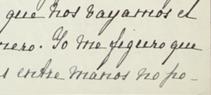 que nos vayamos el
nero. Yo me figuro que
s entre manos no po-